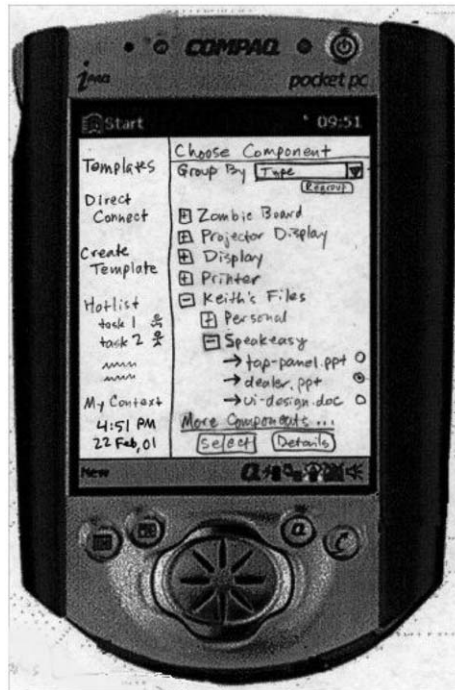 COMPAQ
iPAQ
pocket pc
Start
09:51
Templates
Direct
Connect
Create
Template
Hotlist
task 1
task 2
My Context
4:51 PM
22 Feb, 01
Choose Component
Group By Type
Regroup
Zombie Board
Projector Display
Display
Printer
Keith's Files
Personal
Speakeasy
→ tap-panel.ppt
→ dealer.ppt
→ ui-design.doc
More Components ...
Select Details
New